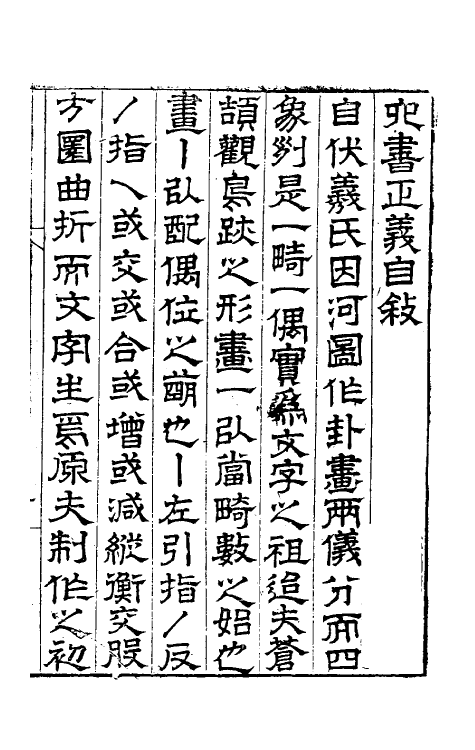 六書正義自敍
自伏羲氏因河圖作卦畫兩儀分而四
象列是一畸一偶實爲文字之祖迨夫蒼
頡觀鳥跡之形畫一㠯當畸數之始也
畫丨㠯配偶位之萌也丨左引指丿反
丿指乀或交或合或增或減縱衡交股
方圜曲折而文字生焉原夫制作之初